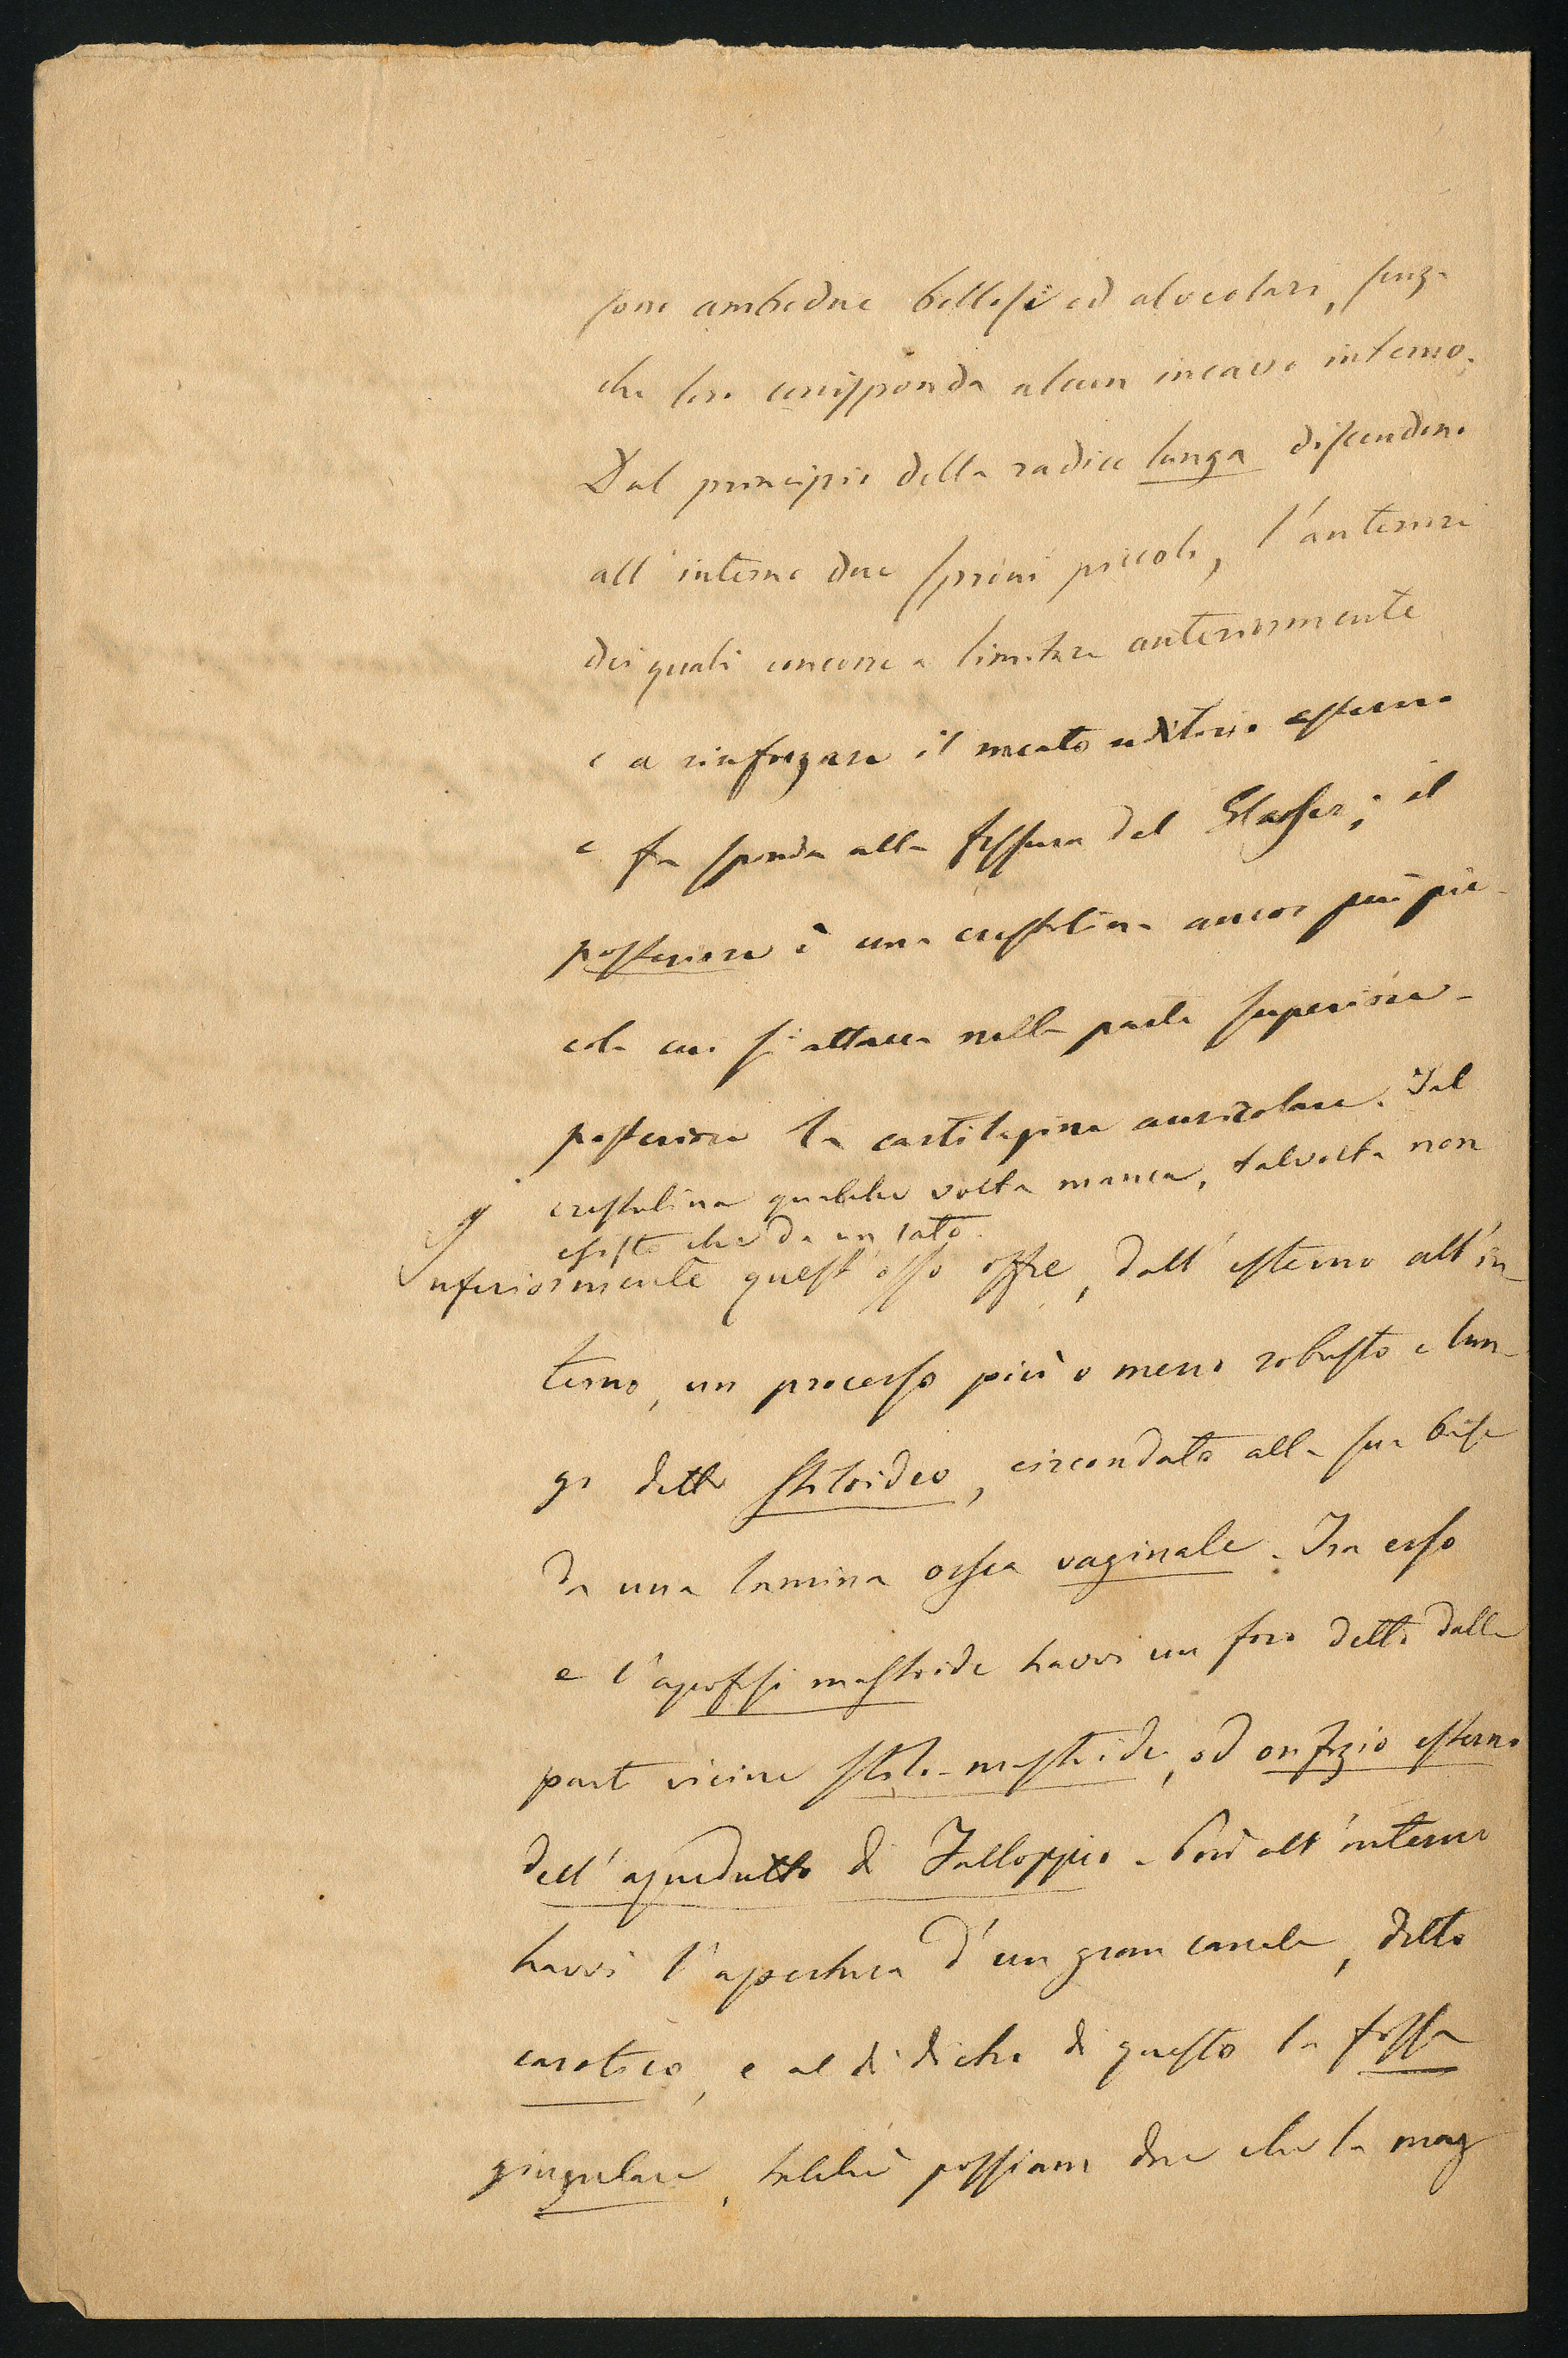 sono ambedue bollosi ed alveolari, senza
che loro corrisponda alcun incavo interno.
Dal principio della radice lunga discendono
all'interno due spini piccoli, l'anteriore
dei quali concorre a limitare anteriormente
e a rinforzare il meato uditorio esterno
e fa sponda alla fessura del Glasser; il
posteriore è una crestolina ancor più pic-
cola cui si attacca nella parte superiore-
posteriore la cartilagine auricolare. Tal
crestolina qualche volta manca, talvolta non
esiste che da un lato.
Inferiormente quest'osso offre, dall'esterno all'in-
terno, un processo più o meno robusto e lun-
go detto stiloideo, circondato alla sua base
da una lamina ossea vaginale. Tra esso
e l'apofisi mastoide havvi un foro detto dalle
parti vicine stilo-mastoide, od orifizio esterno
dell'aquedutto di Falloppio. Più all'interno
havvi l'apertura d'un gran canale, detto
carotico, e al di dietro di questo la fossa
giugulare, talchè possiam dire che la mag